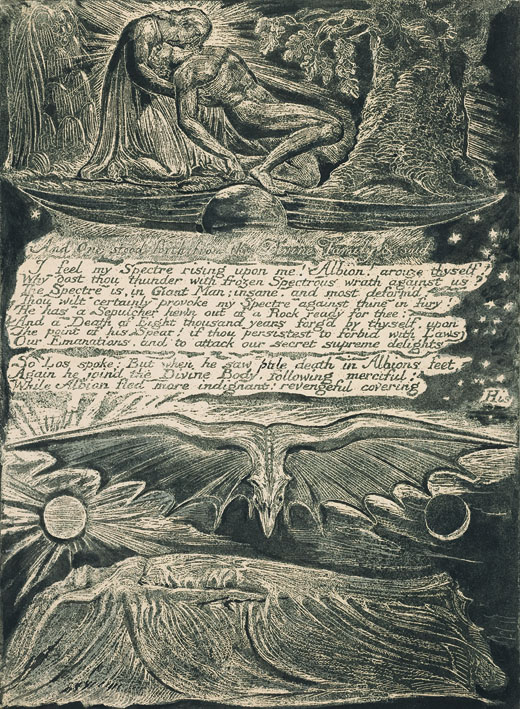 And One stood forth from the Divine Family &
I feel my Spectre rising upon me! Albion! arouze thyself!
Why dost thou thunder with frozen Spectrous wrath against us?
The Spectre is, in Giant Man; insane, and most deform'd
Thou wilt certainly provoke my Spectre against thine in fury!
He has a Sepulcher hewn out of a Rock ready for thee:
And a Death of Eight thousand years forg'd by thyself, upon
The point of his Spear! if thou persistest to forbid with Laws
Our Emanations, and to attack our secret supreme delights
So Los spoke: But when he saw pale death in Albions feet,
Again he join'd the Divine Body, following merciful;
While Albion fled more indignant! revengeful covering